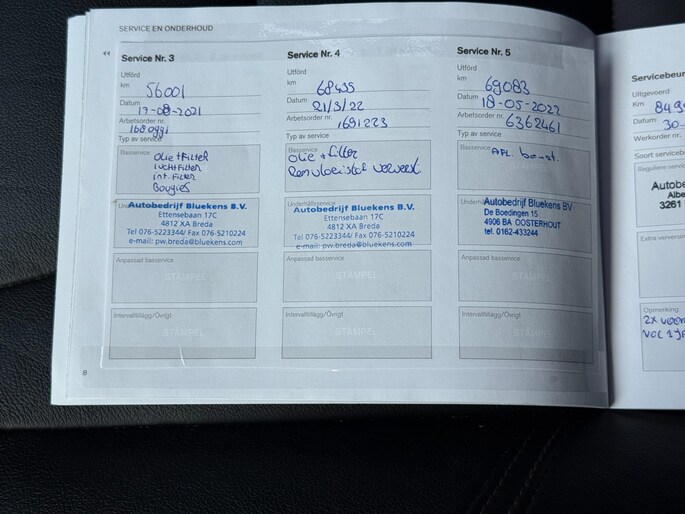 SERVICE EN ONDERHOUD
Service Nr. 3
Utförd
km
56001
Datum
17-08-2021
Arbetsorder nr.
Typ av service
Basservice
olie + Filter
Luchtfilter
int. Filter
Bougies
Autobedrijf Bluekens B.V.
Ettensebaan 17C
4812 XA Breda
Tel 076-5223344/ Fax 076-5210224
e-mail: pw.breda@bluekens.com
Anpassad basservice
STÄMPEL
Intervalltillägg/Övrigt
STÄMPEL
8
Service Nr. 4
Utförd
km
68435
Datum
21/3/22
Arbetsorder nr.
1691223
Typ av service
Basservice
olie + filter
Remvloeistof ververst
Underhållsservice
Autobedrijf Bluekens B.V.
Ettensebaan 17C
4812 XA Breda
Tel 076-5223344/ Fax 076-5210224
e-mail: pw.breda@bluekens.com
Anpassad basservice
STÄMPEL
Intervalltillägg/Övrigt
STÄMPEL
Service Nr. 5
Utförd
km
69083
Datum
18-05-2022
Arbetsorder nr.
6362461
Typ av service
Basservice
AFL. beurt.
Autobedrijf Bluekens BV
De Boedingen 15
4906 BA OOSTERHOUT
tel. 0162-433244
Anpassad basservice
STÄMPEL
Intervalltillägg/Övrigt
STÄMPEL
Servicebeur
Uitgevoerd
Km
Datum
30-
Werkorder nr.
Soort servicebe
Reguliere servi
Autob
Albe
3261
Extra verversin
Opmerking
2x voor